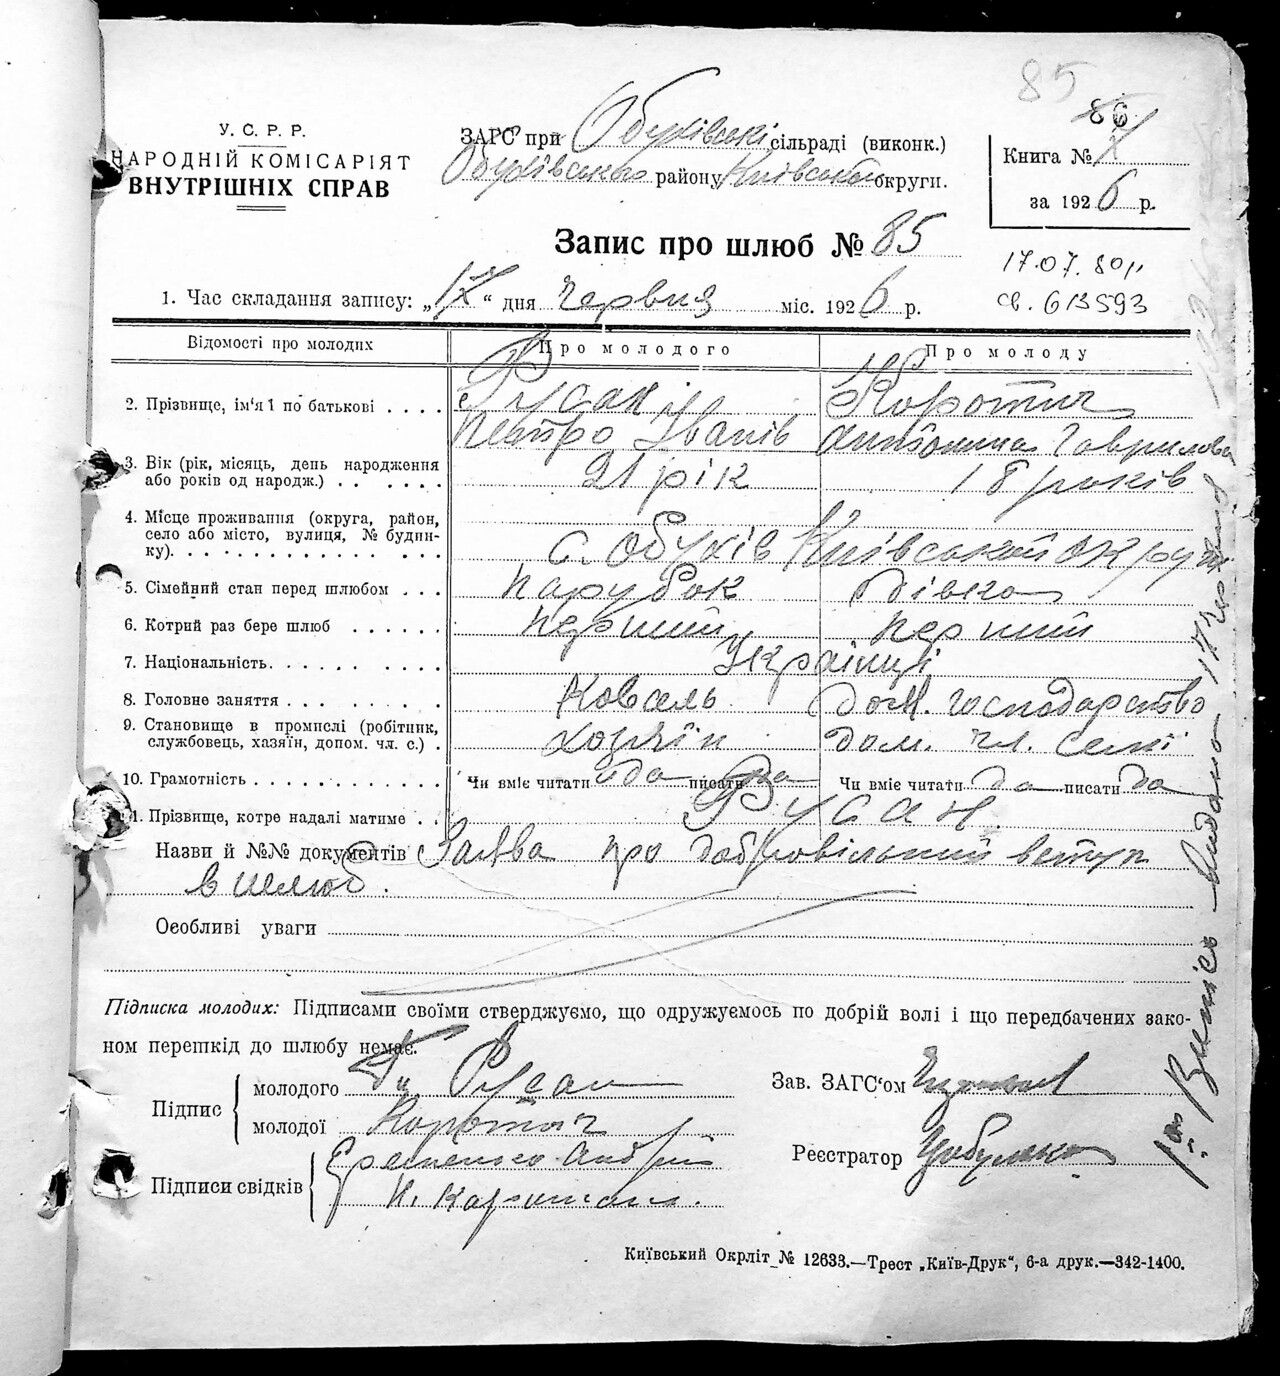 85
86
У. С. Р. Р.
НАРОДНІЙ КОМІСАРІЯТ
ВНУТРІШНІХ СПРАВ
ЗАГС при Обухівські сільраді (виконк.)
Обухівського району Київської округи.
Книга №
за 1926 р.
Запис про шлюб № 85
17.07.80р
св. 613593
1. Час складання запису: „17“ дня Червня міс. 1926 р.
Відомості про молодих Про молодого Про молоду
2. Прізвище, ім'я і по батькові Русан Коротич
Петро Іванів Антонина Гаврилова
3. Вік (рік, місяць, день народження
або років од народж.) 21 рік 18 років
4. Місце проживання (округа, район,
село або місто, вулиця, № будин-
ку) с. Обухів Київської округи
5. Сімейний стан перед шлюбом парубок дівка
6. Котрий раз бере шлюб перший перший
7. Національність Українці
8. Головне заняття Коваль дом. господарство
9. Становище в промислі (робітник,
службовець, хазяїн, допом. чл. с.) хозяїн дом. чл. семї
10. Грамотність Чи вміє читати да писати да Чи вміє читати да писати да
11. Прізвище, котре надалі матиме Русан
Назви й №№ документів Заява про добровільний вступ
в шлюб.
Особливі уваги
Підписка молодих: Підписами своїми стверджуємо, що одружуємось по добрій волі і що передбачених зако-
ном перешкід до шлюбу немає.
Підпис
молодого Русан
молодої Коротич
Зав. ЗАГС'ом
Реєстратор Цобулько
Підписи свідків
Еременко Андрій
Київський Окрліт № 12633.—Трест „Київ-Друк“, 6-а друк.—342-1400.
Випись видано 17